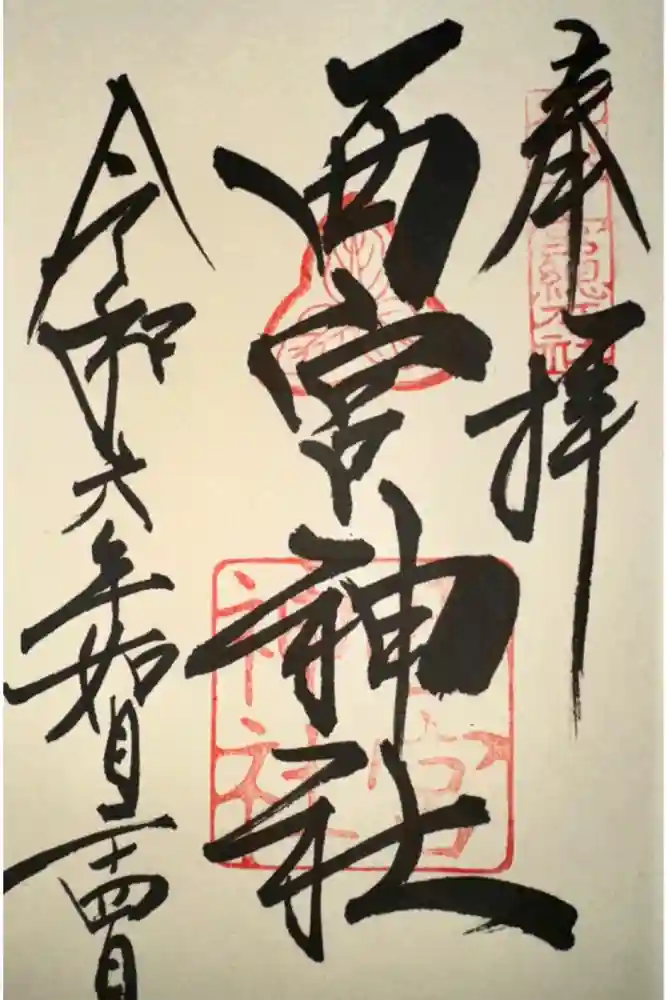 奉拝
西宮神社
令和六年如月二十四日
西宮
神社